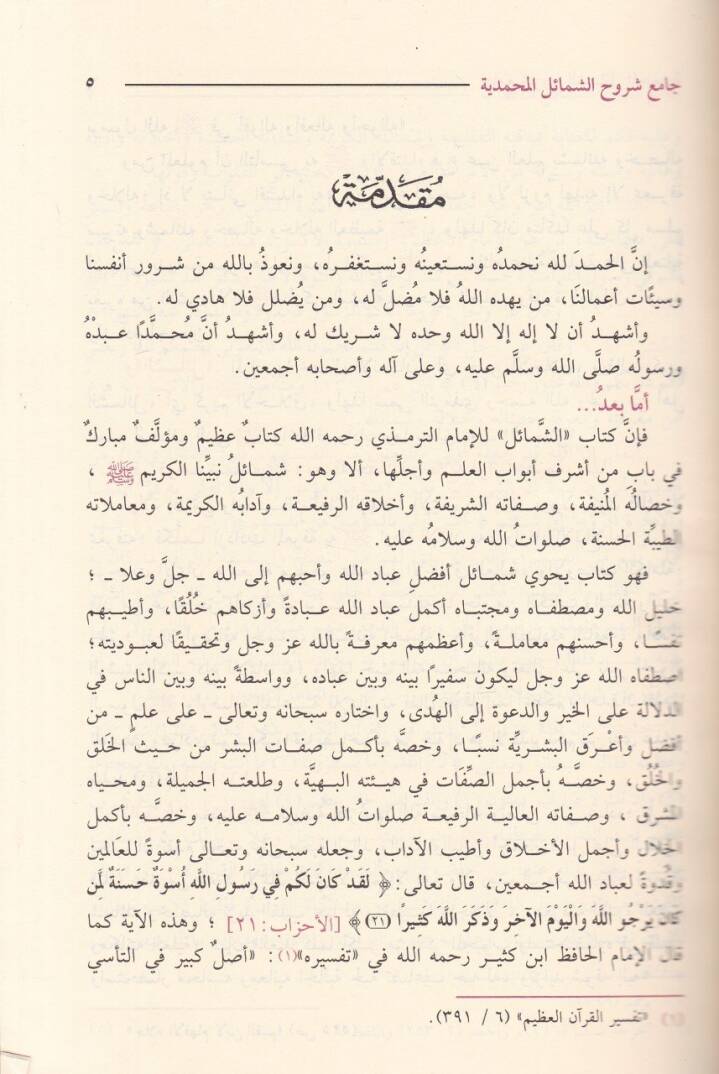 جامع شروح الشمائل المحمدية ٥
مُقَدِّمَة
إنَّ الحمدَ لله نحمدُه ونستعينُه ونستغفرُه، ونعوذُ بالله من شرور أنفسنا
وسيئات أعمالنَا، من يهده اللهُ فلا مُضلَّ له، ومن يُضلل فلا هادي له.
وأشهدُ أن لا إله إلا الله وحده لا شريك له، وأشهدُ أنَّ مُحمَّدًا عبدُهُ
ورسولُه صلَّى الله وسلَّم عليه، وعلى آله وأصحابه أجمعين.
أمَّا بعدُ...
فإنَّ كتاب «الشَّمائل» للإمام الترمذي رحمه الله كتابٌ عظيمٌ ومؤلَّفٌ مباركٌ
في بابٍ من أشرف أبواب العلم وأجلِّها، ألا وهو: شمائلُ نبيِّنا الكريم ﷺ ،
وخصالُه المُنيفة، وصفاته الشريفة، وأخلاقه الرفيعة، وآدابُه الكريمة، ومعاملاته
الطيبِّة الحسنة، صلواتُ الله وسلامُه عليه.
فهو كتاب يحوي شمائل أفضلِ عباد الله وأحبهم إلى الله ـ جلَّ وعلا ـ ؛
خليل الله ومصطفاه ومجتباه أكمل عباد الله عبادةً وأزكاهم خُلُقًا، وأطيبهم
نفسًا، وأحسنهم معاملةً، وأعظمهم معرفةً بالله عز وجل وتحقيقًا لعبوديته؛
اصطفاه الله عز وجل ليكون سفيرًا بينه وبين عباده، وواسطةً بينه وبين الناس في
الدلالة على الخير والدعوة إلى الهُدى، واختاره سبحانه وتعالى ـ على علمٍ ـ من
أفضل وأعْرَق البشريِّة نسبًا، وخصَّه بأكمل صفات البشر من حيث الخَلق
والخُلُق، وخصَّهُ بأجمل الصِّفَات في هيئته البهيَّة، وطلعته الجميلة، ومحياه
المشرق ، وصفاته العالية الرفيعة صلواتُ الله وسلامه عليه، وخصَّه بأكمل
الخلال وأجمل الأخلاق وأطيب الآداب، وجعله سبحانه وتعالى أسوةً للعَالمين
وقُدوةً لعباد الله أجمعين، قال تعالى: ﴿ لَقَدْ كَانَ لَكُمْ فِي رَسُولِ اللَّهِ أُسْوَةٌ حَسَنَةٌ لِمَن
كَانَ يَرْجُو اللَّهَ وَالْيَوْمَ الآخِرَ وَذَكَرَ اللَّهَ كَثِيرًا (٢١)﴾ [الأحزاب:٢١] ؛ وهذه الآية كما
قال الإمام الحافظ ابن كثير رحمه الله في «تفسيره»(١): «أصلٌ كبير في التأسي
(١) «تفسير القرآن العظيم» (٦ / ٣٩١).